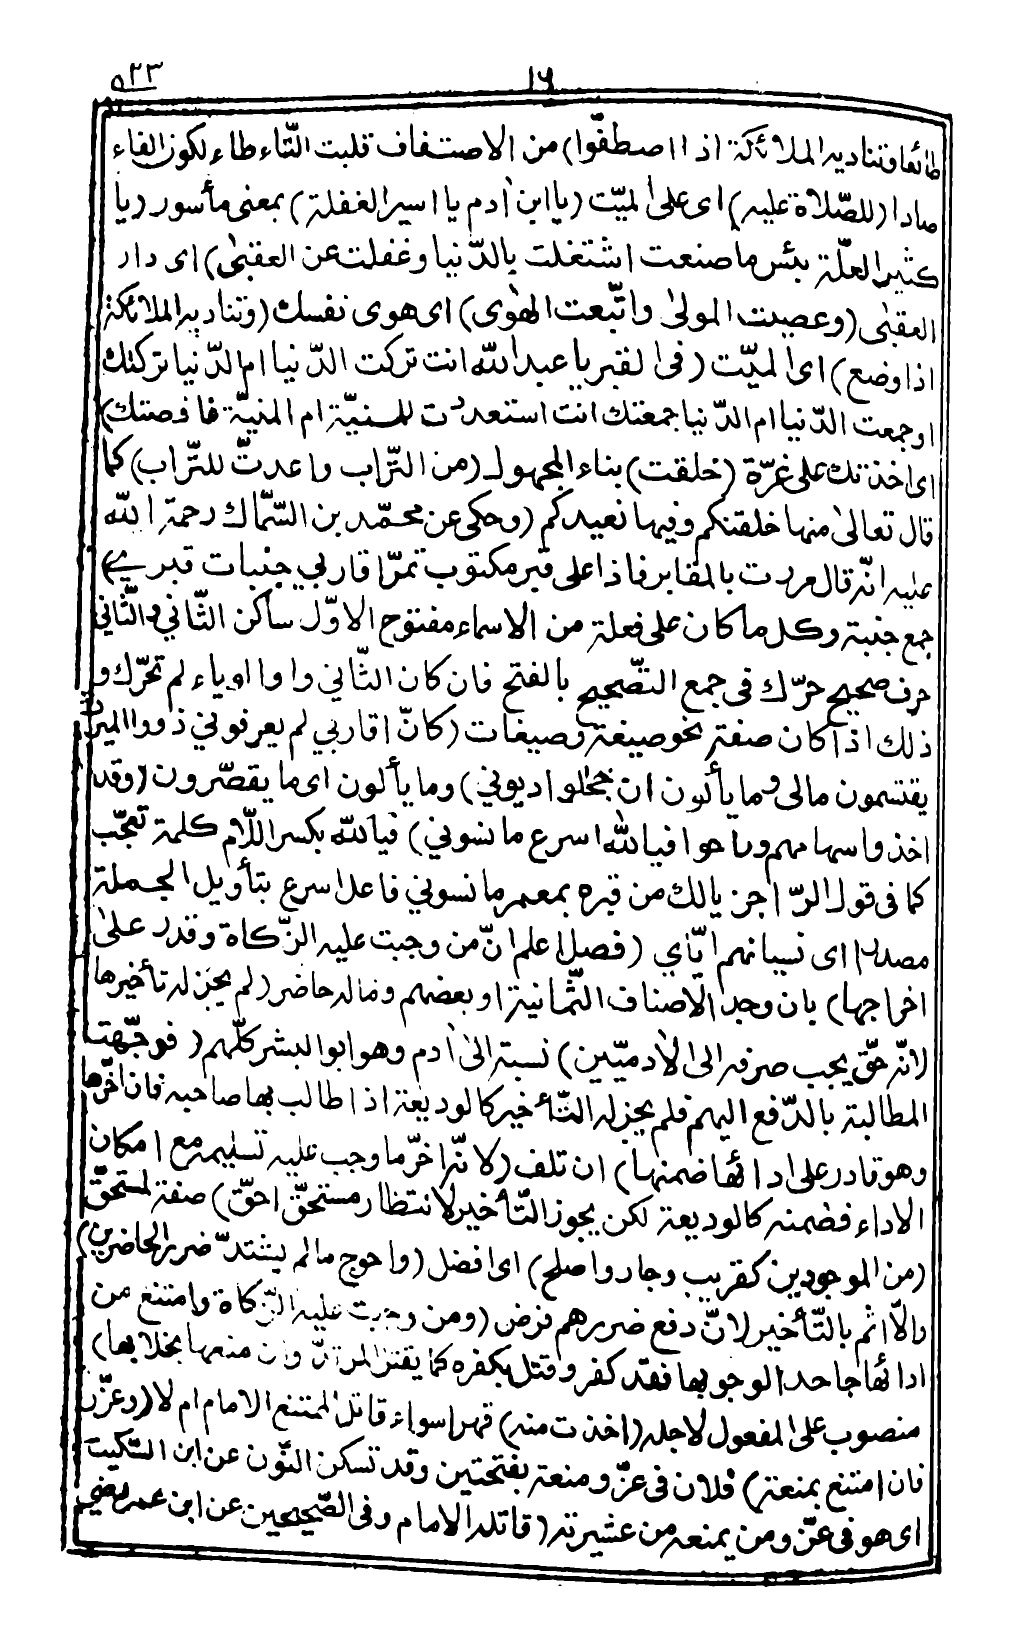 ١٦ ٥٣٣
طائعا وتناديه الملائكة اذا اصطفّوا) من الاصتفاف قلبت التّاء طاء لكون الفاء
صادا (للصّلاة عليه) اى على الميّت (يا ابن اٰدم يا اسير الغفلة) بمعنى مأسور (ريا
كثير العلّة بئس ما صنعت اشتغلت بالدّنيا وغفلت عن العقبىٰ) اى دار
العقبٰى (وعصيت المولىٰ واتّبعت الهوٰى) اى هوى نفسك (وتناديه الملائكة
اذا وضع) اى الميّت (فى القبر يا عبد الله انت تركت الدّنيا ام الدّنيا تركتك
اوجمعت الدّنيا ام الدّنيا جمعتك انت استعددت للمنيّة ام المنيّة فافصتك)
اى اخذتك على غرّة (خلقت) بناء المجهول (من التّراب واعدتّ للتّراب) كما
قال تعالىٰ منها خلقنٰكم وفيها نعيدكم (وحكى عن محمّد بن السّمّاك رحمة الله
عليه انّه قال مررت بالمقابر فاذا على قبر مكتوب تمرّ اقاربي جنبات قبرى)
جمع جنبة وكل ما كان على فعلة من الاسماء مفتوح الاوّل ساكن الثّاني والثّاني
حرف صحيح حرّك فى جمع التصحيح بالفتح فان كان الثّاني واوا او ياء لم تحرّك و
ذلك اذا كان صفة نحو صيغة وصيغات (كانّ اقاربي لم يعرفوني ذووا الميراث
يقتسمون مالى وما يألون ان جحدوا ديوني) وما يألون اى ما يقصّرون (وقد
اخذوا سهامهم وراحوا فيا لله اسرع ما نسوني) فيا لله بكسر اللّام كلمة تعجّب
كما فى قول الرّاجز يا لك من قبره بمعمر ما نسوني فاعل اسرع بتأويل الجملة
مصدرا اى نسيانهم ايّاي (فصل اعلم انّ من وجبت عليه الزّكاة وقدر علىٰ
اخراجها) بان وجد الاصناف الثّمانية او بعضهم وماله حاضر (لم يجز له تأخيرها
لانّه حقّ يجب صرفه الى الاٰدميّين) نسبة الىٰ اٰدم وهو ابو البشر كلّهم (فوجّهت
المطالبة بالدّفع اليهم فلم يجز له التّأخير كالوديعة اذا طالب بها صاحبه فان اخّرها
وهو قادر على ادائها ضمنها) ان تلف (لانّه اخّر ما وجب عليه تسليمه مع امكان
الاداء فضمنه كالوديعة لكن يجوز التّأخير لانتظار مستحقّ احقّ) صفة لمستحقّ
(من الموجودين كقريب وجار واصلح) اى افضل (واحوج ما لم يشتدّ ضرر الحاضرين)
والّا اثم بالتّأخير لانّ دفع ضررهم فرض (ومن وجبت عليه الزّكاة وامتنع من
ادائها جاحدا لوجوبها فقد كفر وقتل بكفره كما يقتل المرتدّ وان منعها بخلا بها)
منصوب على المفعول لاجله (اخذت منه) قهرا سواء قاتل الممتنع الامام ام لا (وعزّر
فان امتنع بمنعة) فلان فى عزّ ومنعة بفتحتين وقد تسكن النّون عن ابن السّكيت
اى هو فى عزّ ومن يمنعه من عشيرته (قاتله الامام وفى الصّحيحين عن ابن عمر رضى